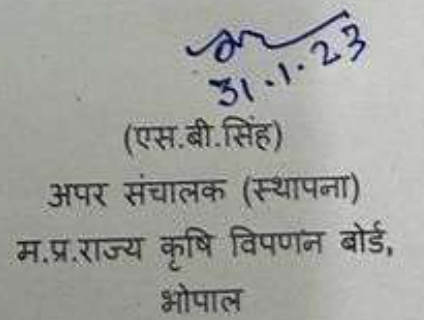 31.1.23
(एस.बी.सिंह)
अपर संचालक (स्थापना)
म.प्र.राज्य कृषि विपणन बोर्ड,
भोपाल